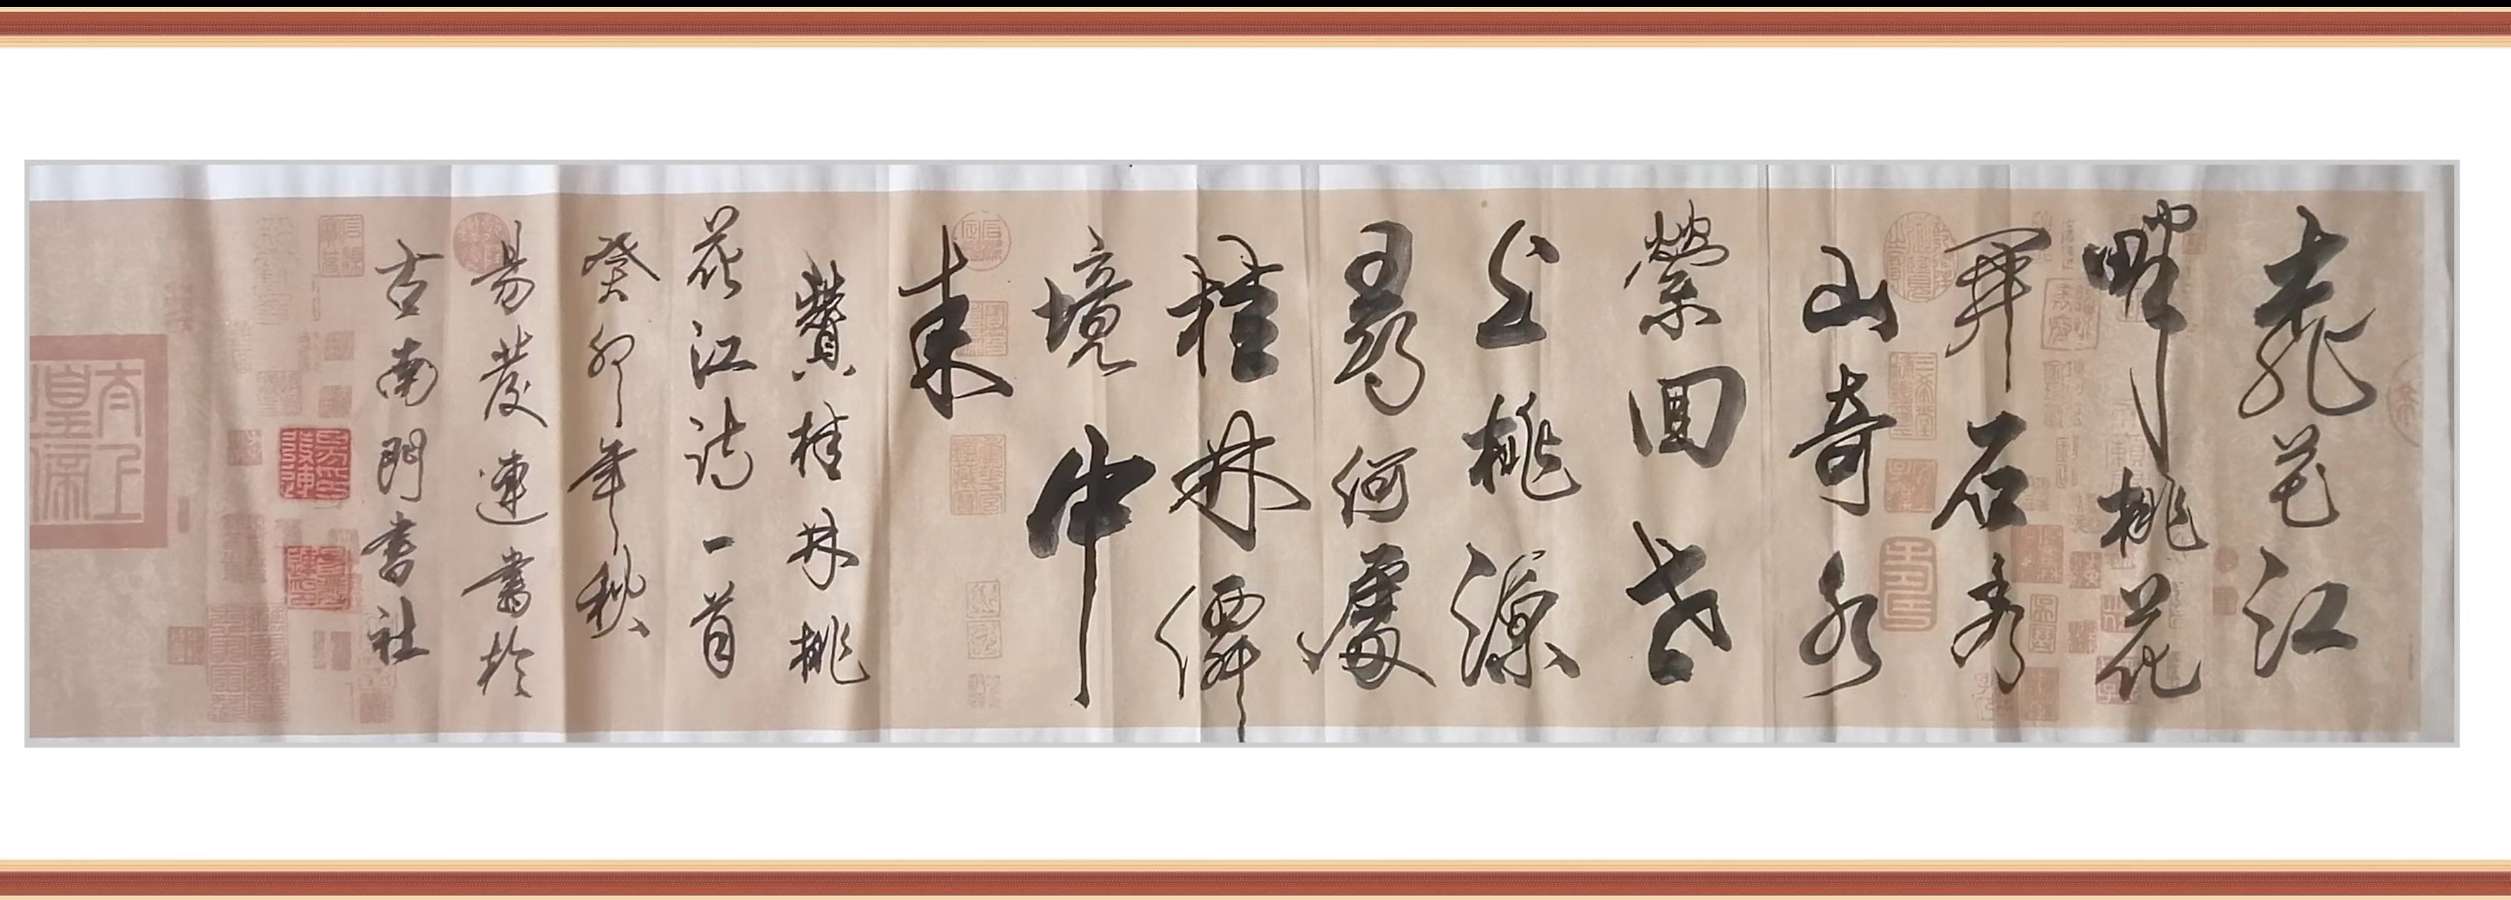 桃花江
畔桃花
開石秀
山奇水
縈回世
上桃源
尋何處
桂林僊
境中
來
贊桂林桃
花江诗一首
癸卯年秋
易發連書於
古南門書社